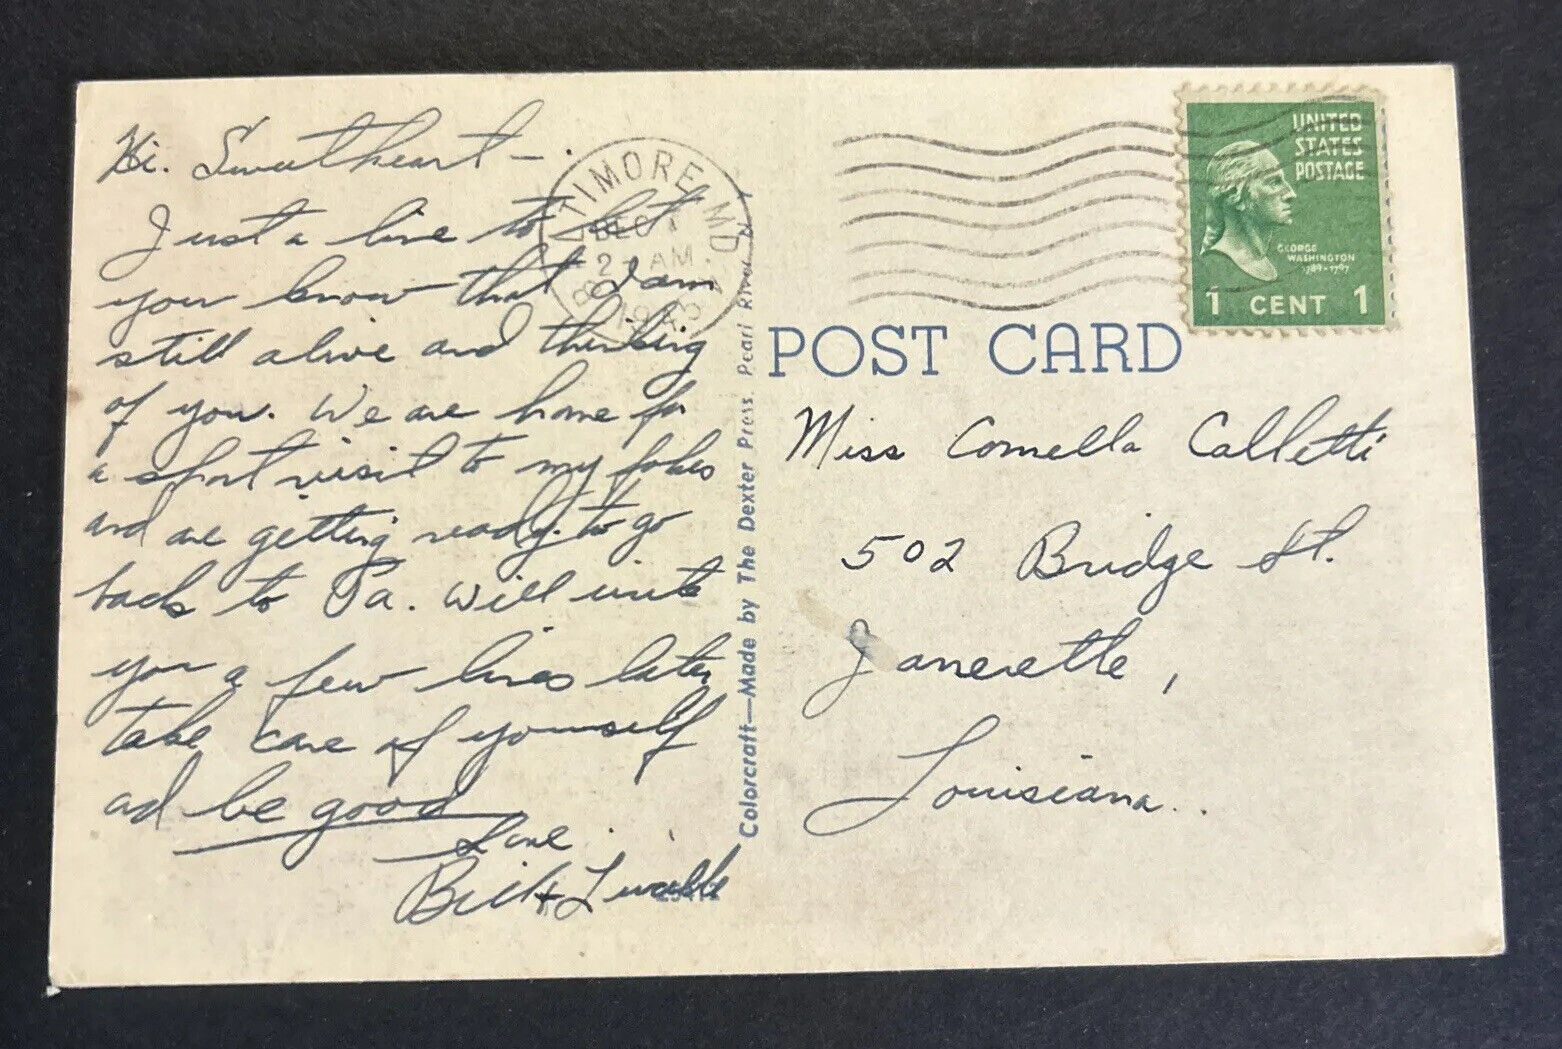 Hi. Sweetheart —.
Just a line to let
you know that I am
still alive and thinking
of you. We are home for
a short visit to my folks
and are getting ready to go
back to Pa. Will write
you a few lines later,
take care of yourself
and be good
Love
Bill +
BALTIMORE, MD
DEC
2 - AM
1945
Colorcraft—Made by The Dexter Press, Pearl River, N. Y.
UNITED
STATES
POSTAGE
GEORGE
WASHINGTON
1789-1797
1 CENT 1
POST CARD
Miss Cornella Calletti
502 Bridge St.
Janerette,
Louisiana..